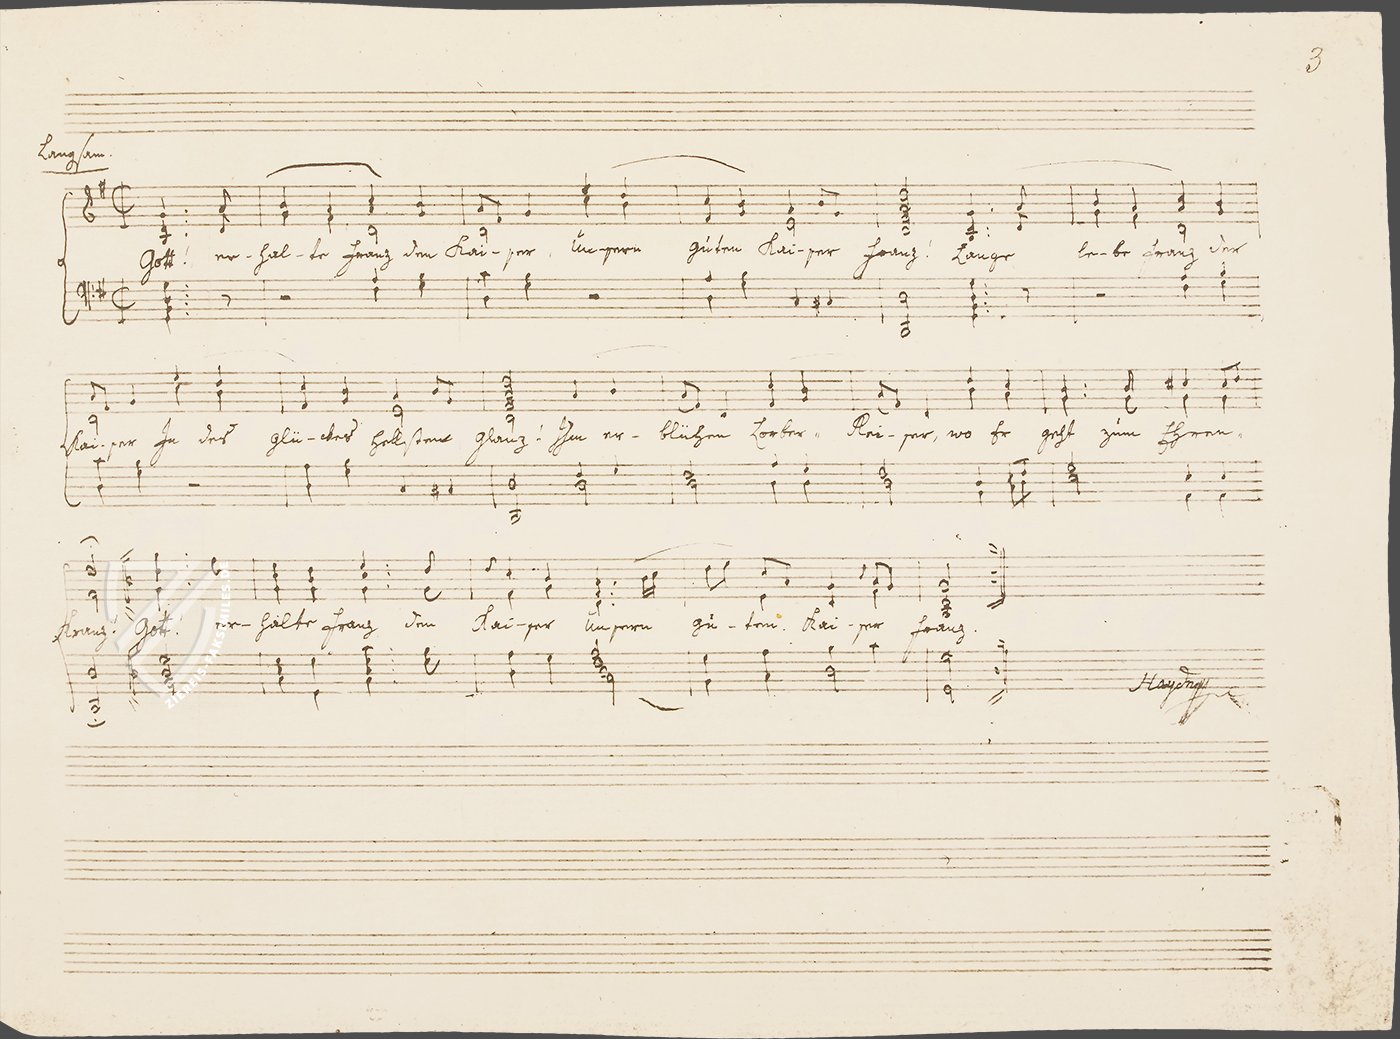 3
Langsam.
Gott! er-hal-te Franz den Kai-ser, Un-sern guten Kai-ser Franz! Lange le-be Franz der
Kai-ser In des Glü-ckes hellstem Glanz! Ihm er-blühen Lorber- Rei-ser, wo Er geht zum Ehren-
Kranz! Gott! er-halte Franz den Kai-ser Unsern gu-ten Kai-ser Franz.
Haydn
ZIEREIS FAKSIMILES